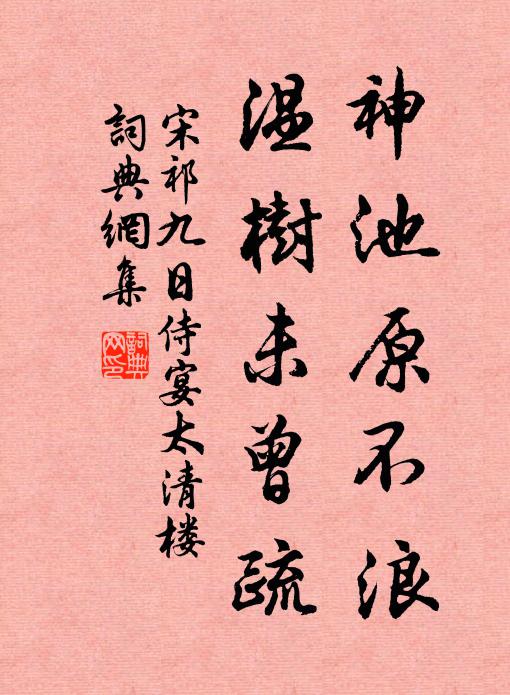 神池原不浪
温樹未曾疏
宋祁九日侍宴太清楼
詞典網集
詞典
网印